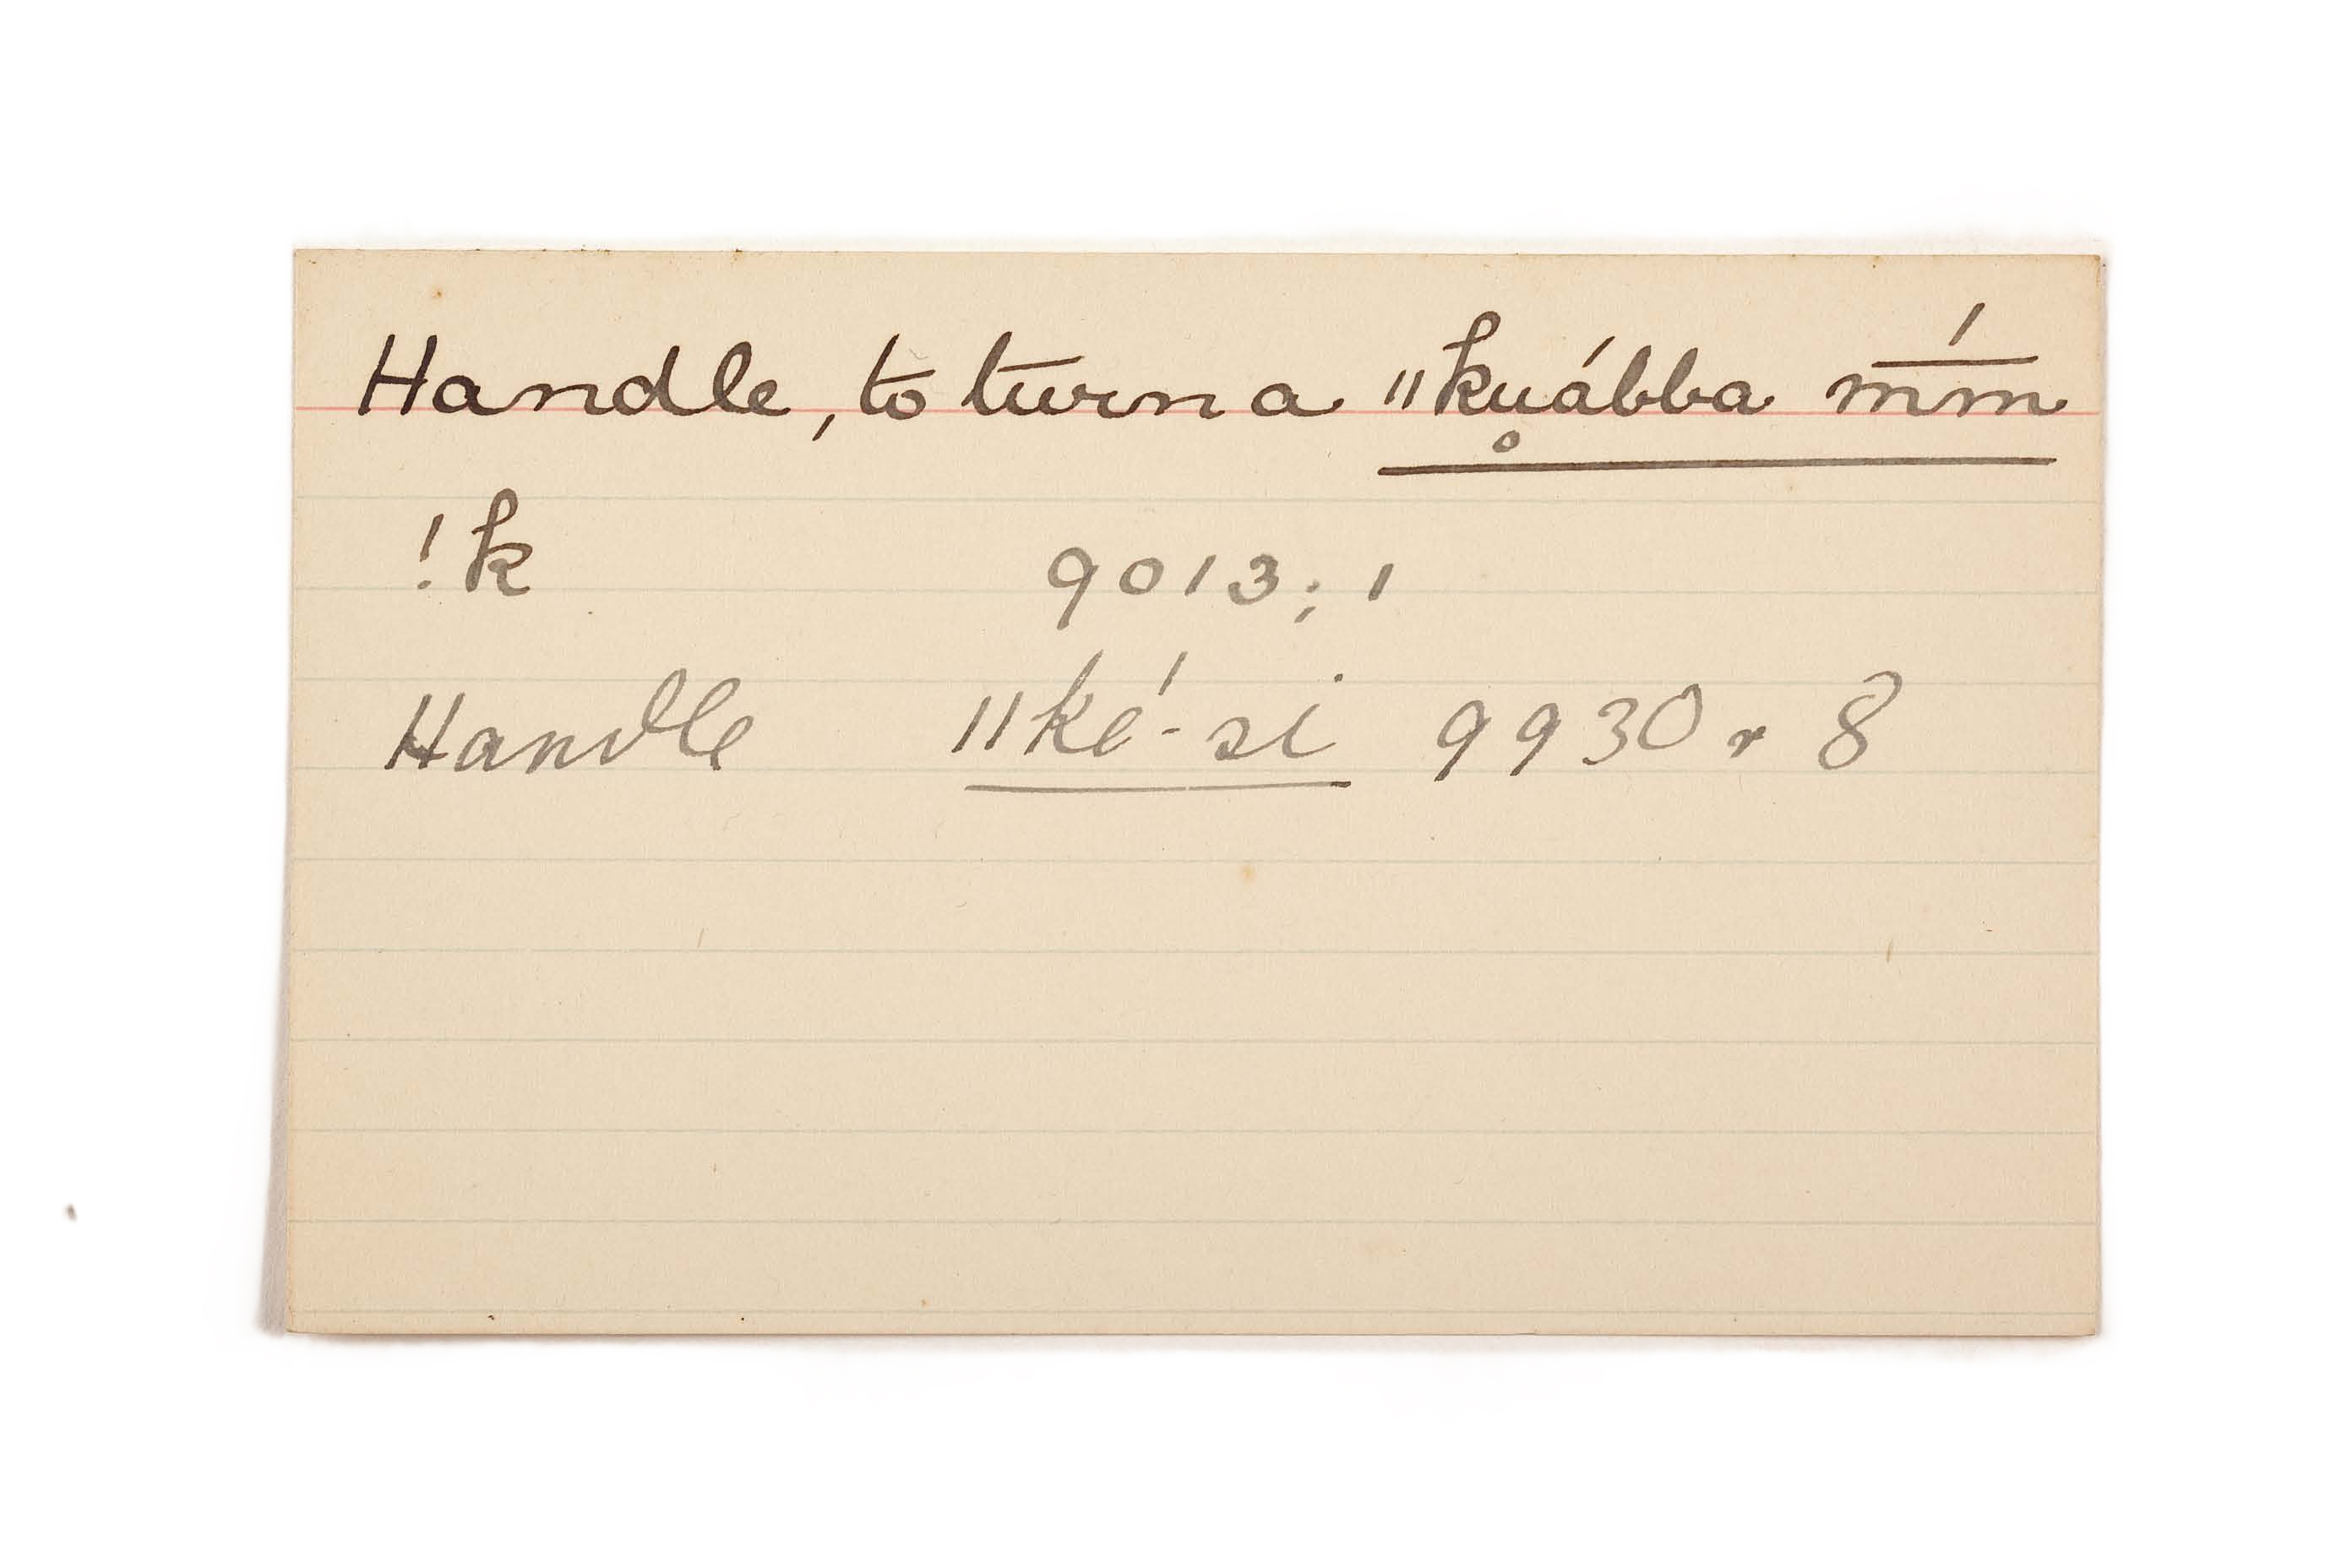 Handle, to turn a ǁku̥ábba m̅́m̅
!k 9013; 1
Handle ǁké-si 9930 r 8